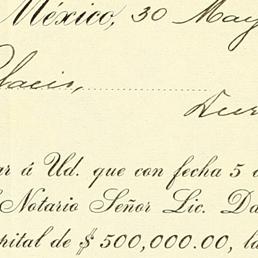 México, 30 May
lacio,
Dur
ar á Ud. que con fecha 5 d
Notario Señor Lic. Da
pital de $ 500,000.00, la